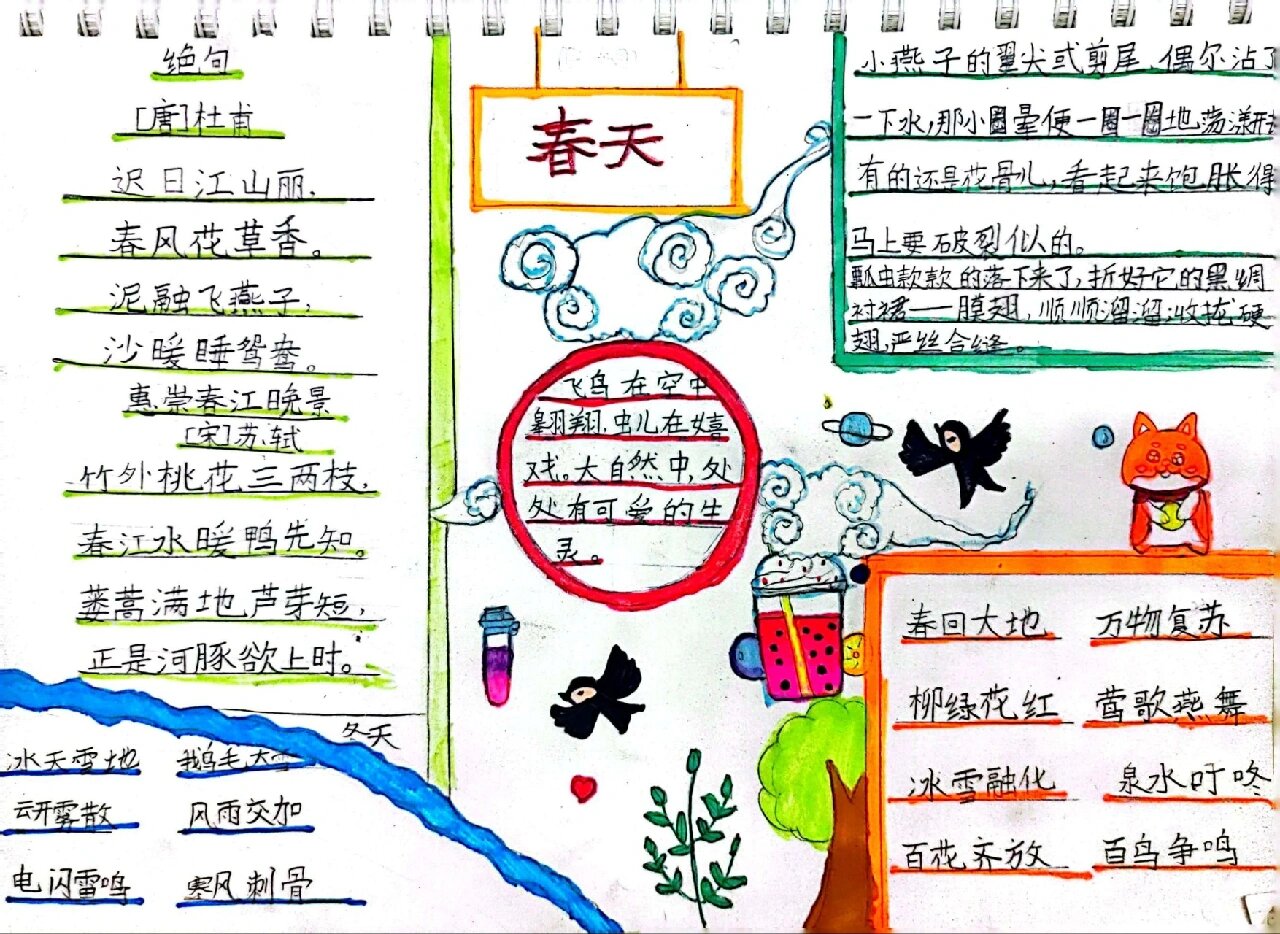 绝句
[唐]杜甫
迟日江山丽，
春风花草香。
泥融飞燕子，
沙暖睡鸳鸯。
惠崇春江晚景
[宋]苏轼
竹外桃花三两枝，
春江水暖鸭先知。
蒌蒿满地芦芽短，
正是河豚欲上时。
冬天
冰天雪地 鹅毛大雪
云开雾散 风雨交加
电闪雷鸣 寒风刺骨
春天
飞鸟在空中
翱翔，虫儿在嬉
戏。大自然中，处
处有可爱的生
灵。
小燕子的翼尖或剪尾，偶尔沾了
一下水，那小圈晕便一圈一圈地荡漾开去
有的还是花骨儿，看起来饱胀得
马上要破裂似的。
瓢虫款款的落下来了，折好它的黑绸
衬裙——膜翅，顺顺溜溜收拢硬
翅，严丝合缝。
春回大地 万物复苏
柳绿花红 莺歌燕舞
冰雪融化 泉水叮咚
百花齐放 百鸟争鸣